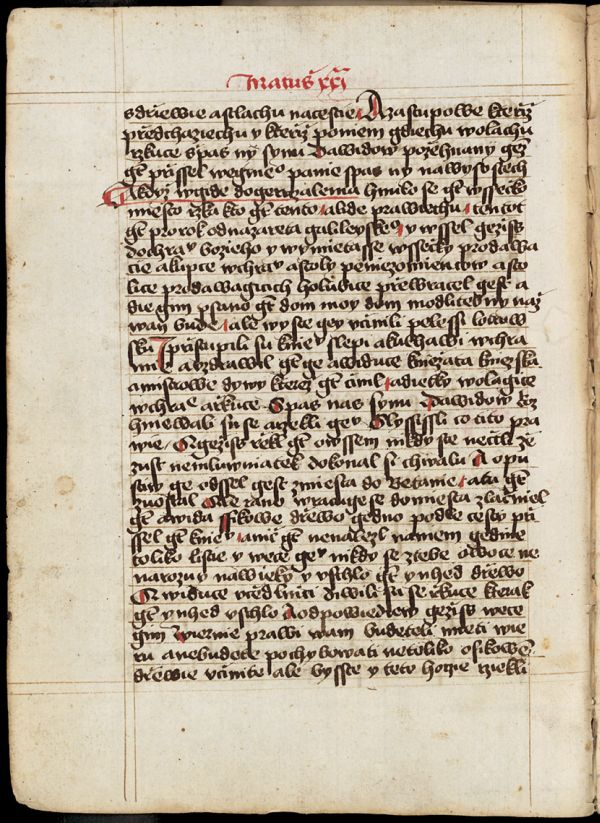 Matuš xxi
sdřiewie astlachu nacestie A zastupowe kteřiž
předchaziechu y kteřiž poniem gdiechu wolachu
řzkuce spas ny synu dawidow požehnany genž
gt přissel wegmeno panie spas ny nawysostech
A když wgide dogeruzalema hnulo se gt wssecko
miesto řzka kto gt tento alide prawiechu tentot
gt prorok odnazareta galileyske° y wssel geziss
dochramu božieho y wymietasse wssecky prodawa
cie akupce wchramu astoly peniezomiencow asto
lice prodawagicich holubice přewracel gest a
die gim psano gt dom moy dom modlitebny naz
wan bude ale wy ste gey včinili pelessi lotrow
sku Přistupili su kniemu slepi akulhawi wchra
mie auzdrawil gt ge awiduce kniezata kniezska
amistrowe diwy kterez gt činil adietky wolagice
wchramie ařkuce Spas nas synu Dawidow roz
hniewali su se ařekli gemu Slyssissli co tito pra
wie Geziss řekl gt owssem nikdy ste nečtli že
zust nemluwniatek dokonal si chwalu A opu
stiw ge odssel gest zmiesta do Betanie atu gt
zuostal Ale rano wracuge se domiesta zlačniel
gt awida fikowe dřewo gedno podle cesty při
ssel gt kniemu anic gt nenalezl naniem gedine
toliko listie y wece gemu nikdy se ztebe owoce ne
narozuy nawieky y vschlo gt yhned dřewo
A widuce včedlnici diwili su se řkuce kterak
gt yhned vschlo A odpowiediew geziss wece
gim wiernie prawi wam budeteli mieti wie
ru anebudete pochybowati netoliko ofikowem
dřewie včinite ale bysste y teto hoře řzekli